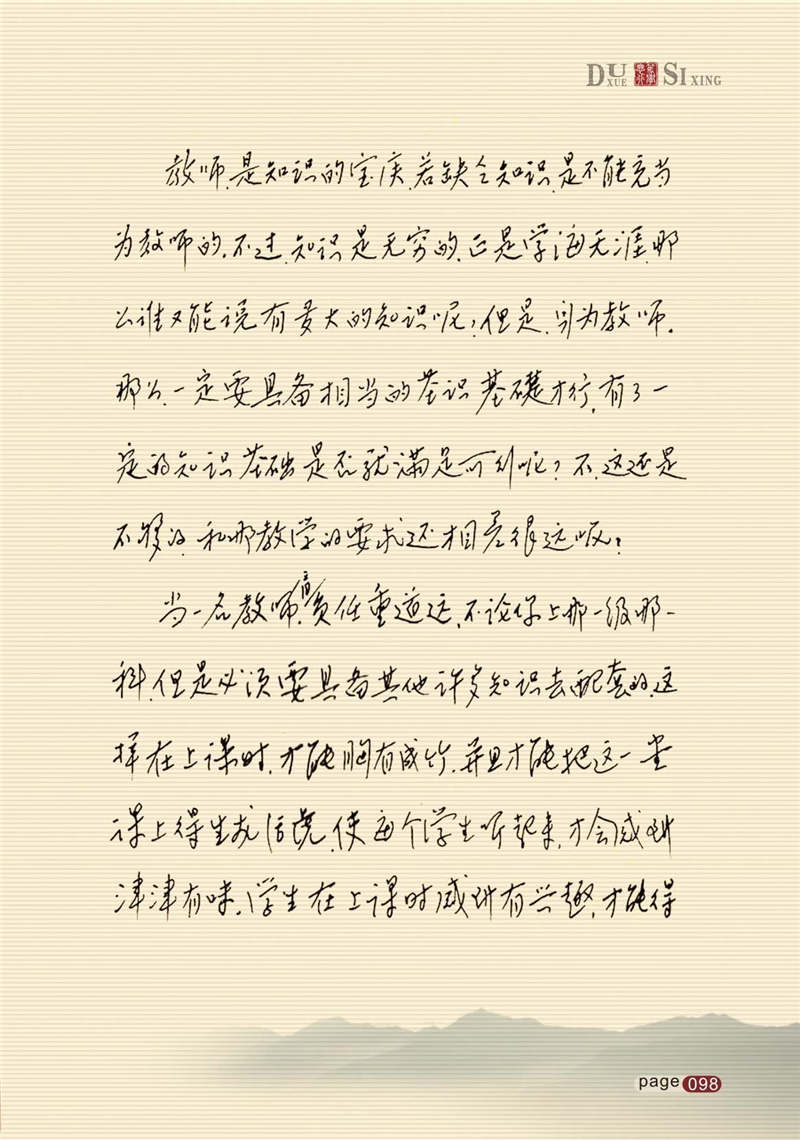 DU XUE SI XING
教师，是知识的宝库，若缺乏知识，是不能充当
为教师的，不过，知识是无穷的，正是学海无涯，那
么谁又能说有多大的知识呢？但是，因为教师，
那么，一定要具备相当的基识基礎才行，有了一
定的知识基础是否就满足可以呢？不，这还是
不够的，和那教学的要求还相差很远呢？
当一名教师，责任重道远，不论你上那一级那一
科，但是必须要具备其他许多知识去配套的，这
样在上课时，才能胸有成竹，并且才能把这一堂
课上得生龙活虎，使每个学生听起来，才会感到
津津有味，学生在上课时感到有兴趣，才能得
page 098